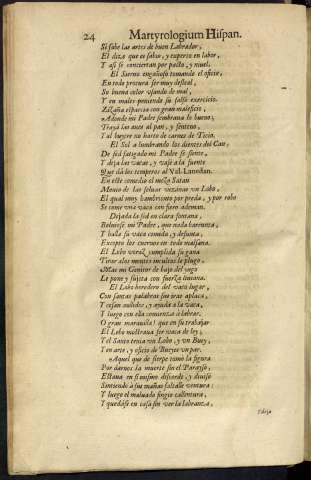 24 Martyrologium Hispan.
Si sabe las artes de buen Labrador,
El dize que es sabio, y experto en labor,
Y assi se conciertan por pacto, y nivel.
El Siervo engañoso tomando el oficio,
En todo procura ser muy desleal,
Su buena color usando de mal,
Y en males poniendo su falso exercicio.
Zizaña esparzia con gran maleficio,
Adonde mi Padre sembrava lo bueno;
Trayá las aves al pan, y senteno,
Y al buytre no harto de carnes de Ticio.
El Sol a lumbrando los dientes del Can,
De sed fatigado mi Padre se siente,
Y dexa las vacas, y vase a la fuente
Que dà los temperos al Val-Lunadan.
En este comedio el
Movio de las selvas vezinas un Lobo,
El qual muy hambriento por preda, y por robo
Se come una vaca con fiero ademan.
Dexada la sed en clara fontana,
Bolviese mi Padre, que nada barrunta,
Y halla su vaca comida, y defunta,
Excepto los cuernos en toda
El Lobo voraz cumplida su gana
Tirar a los montes incultos le plugo,
Mas mi Genitor de baxo del yugo
Le pone y sujeta con fuerza liviana.
El Lobo heredero del vaco lugar,
Con santas palabras sus iras aplaca,
Y cessan aullidos, y ayuda a la vaca,
Y luego con ella comiença à labrar.
O gran maravilla! que en su trabajar
El Lobo mostrava ser vaca de ley;
Y el Santo tenia un Lobo, y un Buey,
Y en arte, y oficio de Bueyes un par.
Aquel que de sierpe tomò la figura
Por darnos la muerte en el Parayso,
Estava en si mismo discorde, y diviso
Sintiendo à sus mañas faltalle ventura:
Y luego el malvado fingio calentura,
Y quedase en casa sin ver la labranca,